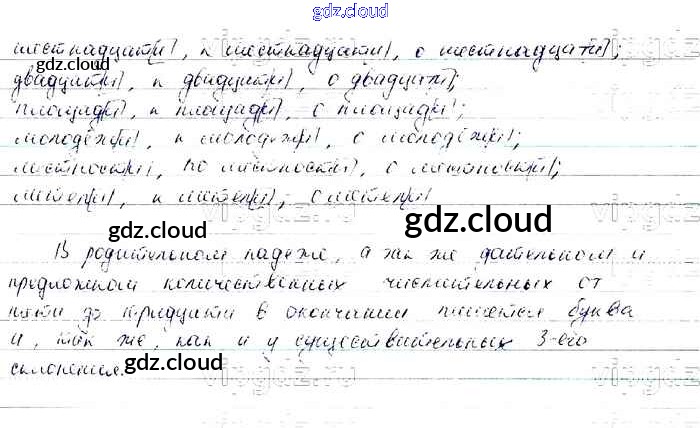 gdz.cloud
шестнадцати, к шестнадцати, о шестнадцати;
двадцати, к двадцати, о двадцати;
площади, к площади, о площади;
молодёжи, к молодежи, о молодёжи;
местности, по местности, о местности;
метели, к метели, о метели
gdz.cloud
gdz.cloud
В родительном падеже, а так же дательном и
предложном количественных числительных от
пяти до тридцати в окончании пишется буква
и, так же, как и у существительных 3-его
склонения.
gdz.cloud
gdz.cloud
gdz.cloud
gdz.cloud